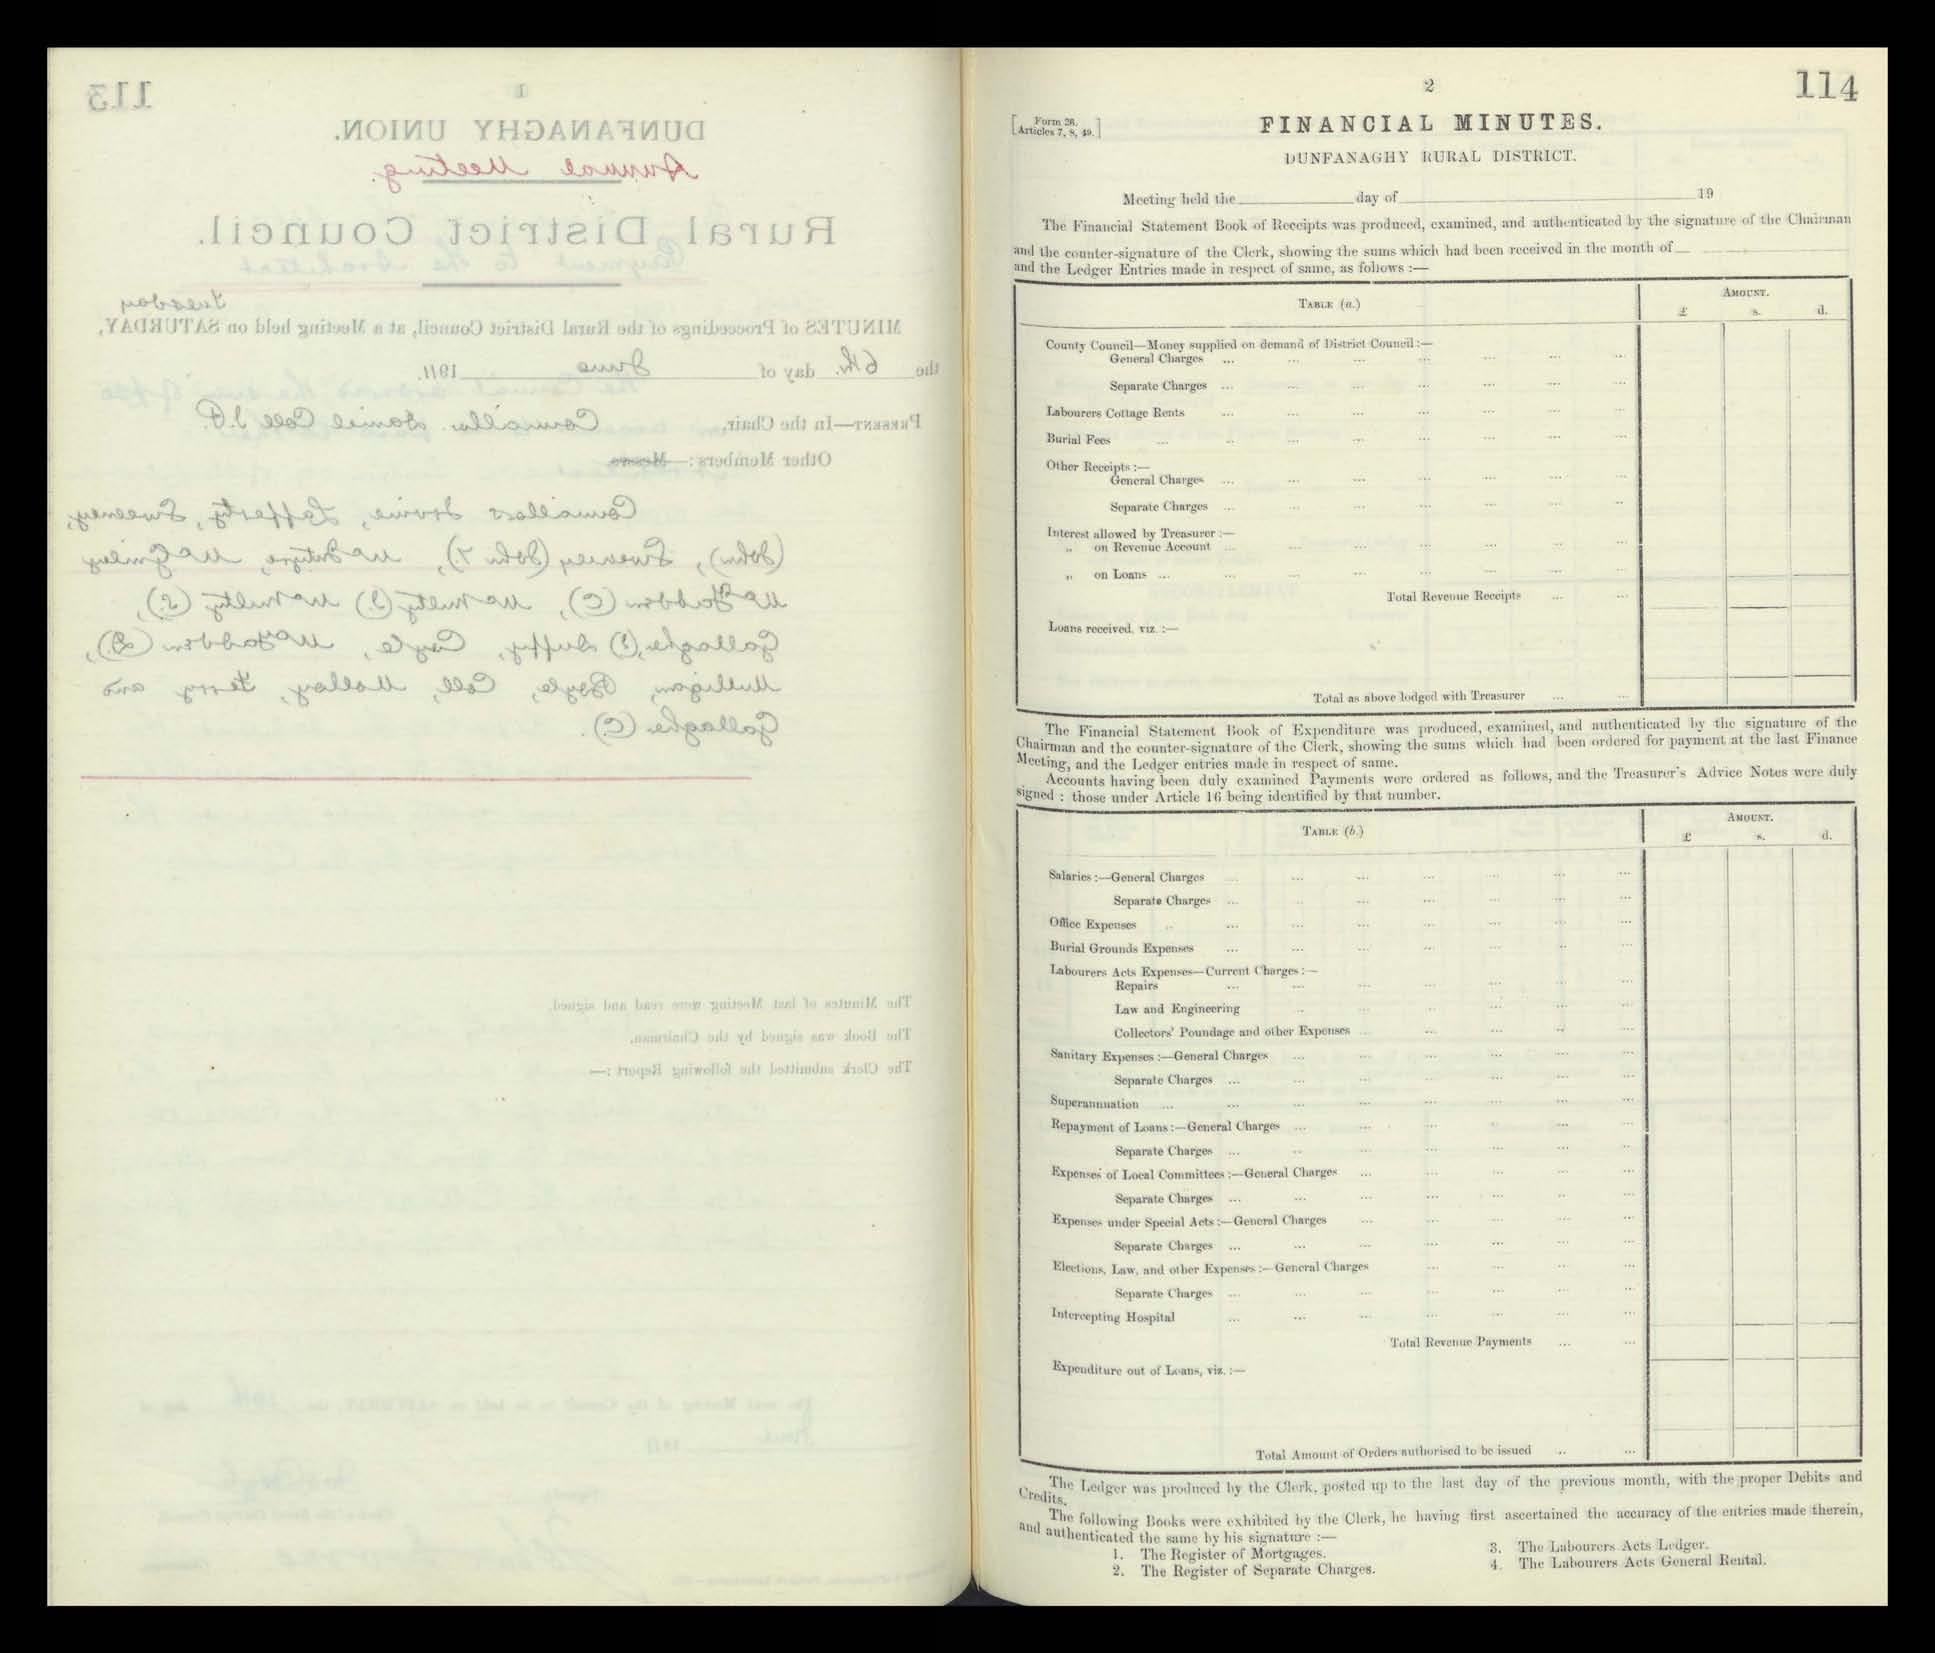 113
1
DUNFANAGHY UNION.
Annual Meeting.
Rural District Council.
Tuesday
MINUTES of Proceedings of the Rural District Council, at a Meeting held on SATURDAY,
the 6th. day of June 1911.
PRESENT—In the Chair, Councillor Daniel Coll J.P.
Other Members:— Messrs
Councillors Irvine, Lafferty, Sweeney,
(John), Sweeney (John T.), McIntyre, McGinley
McFadden (C), McNelty (J) McNelty (S),
Gallagher, (J) Duffy, Coyle, McFadden (D),
Mulligan, Boyle, Coll, Molloy, Ferry and
Gallagher (C).
The Minutes of last Meeting were read and signed.
The Book was signed by the Chairman.
The Clerk submitted the following Report :—
2
114
[Form 26. Articles 7, 8, 49.]
FINANCIAL MINUTES.
DUNFANAGHY RURAL DISTRICT.
Meeting held the day of 19
The Financial Statement Book of Receipts was produced, examined, and authenticated by the signature of the Chairman
and the counter-signature of the Clerk, showing the sums which had been received in the month of
and the Ledger Entries made in respect of same, as follows :—
TABLE (a.) AMOUNT.
£ s. d.
County Council—Money supplied on demand of District Council :—
General Charges ... ... ... ... ... ... ...
Separate Charges ... ... ... ... ... ... ...
Labourers Cottage Rents ... ... ... ... ... ... ...
Burial Fees ... ... ... ... ... ... ... ...
Other Receipts :—
General Charges ... ... ... ... ... ... ...
Separate Charges ... ... ... ... ... ... ...
Interest allowed by Treasurer :—
„ on Revenue Account ... ... ... ... ... ... ...
„ on Loans ... ... ... ... ... ... ... ...
Total Revenue Receipts ... ...
Loans received, viz. :—
Total as above lodged with Treasurer ... ...
The Financial Statement Book of Expenditure was produced, examined, and authenticated by the signature of the
Chairman and the counter-signature of the Clerk, showing the sums which had been ordered for payment at the last Finance
Meeting, and the Ledger entries made in respect of same.
Accounts having been duly examined Payments were ordered as follows, and the Treasurer's Advice Notes were duly
signed ; those under Article 16 being identified by that number.
TABLE (b.) AMOUNT.
£ s. d.
Salaries :—General Charges ... ... ... ... ... ... ...
Separate Charges ... ... ... ... ... ... ...
Office Expenses ... ... ... ... ... ... ... ...
Burial Grounds Expenses ... ... ... ... ... ... ...
Labourers Acts Expenses—Current Charges :—
Repairs ... ... ... ... ... ... ...
Law and Engineering ... ... ... ... ... ...
Collectors' Poundage and other Expenses ... ... ... ... ...
Sanitary Expenses :—General Charges ... ... ... ... ... ...
Separate Charges ... ... ... ... ... ... ...
Superannuation ... ... ... ... ... ... ... ...
Repayment of Loans :—General Charges ... ... ... ... ... ...
Separate Charges ... ... ... ... ... ... ...
Expenses of Local Committees :—General Charges ... ... ... ... ...
Separate Charges ... ... ... ... ... ... ...
Expenses under Special Acts :—General Charges ... ... ... ... ...
Separate Charges ... ... ... ... ... ... ...
Elections, Law, and other Expenses :—General Charges ... ... ... ...
Separate Charges ... ... ... ... ... ... ...
Intercepting Hospital ... ... ... ... ... ... ...
Total Revenue Payments ... ...
Expenditure out of Loans, viz. :—
Total Amount of Orders authorised to be issued ... ...
The Ledger was produced by the Clerk, posted up to the last day of the previous month, with the proper Debits and
Credits.
The following Books were exhibited by the Clerk, he having first ascertained the accuracy of the entries made therein,
and authenticated the same by his signature :—
1. The Register of Mortgages.
2. The Register of Separate Charges.
3. The Labourers Acts Ledger.
4. The Labourers Acts General Rental.